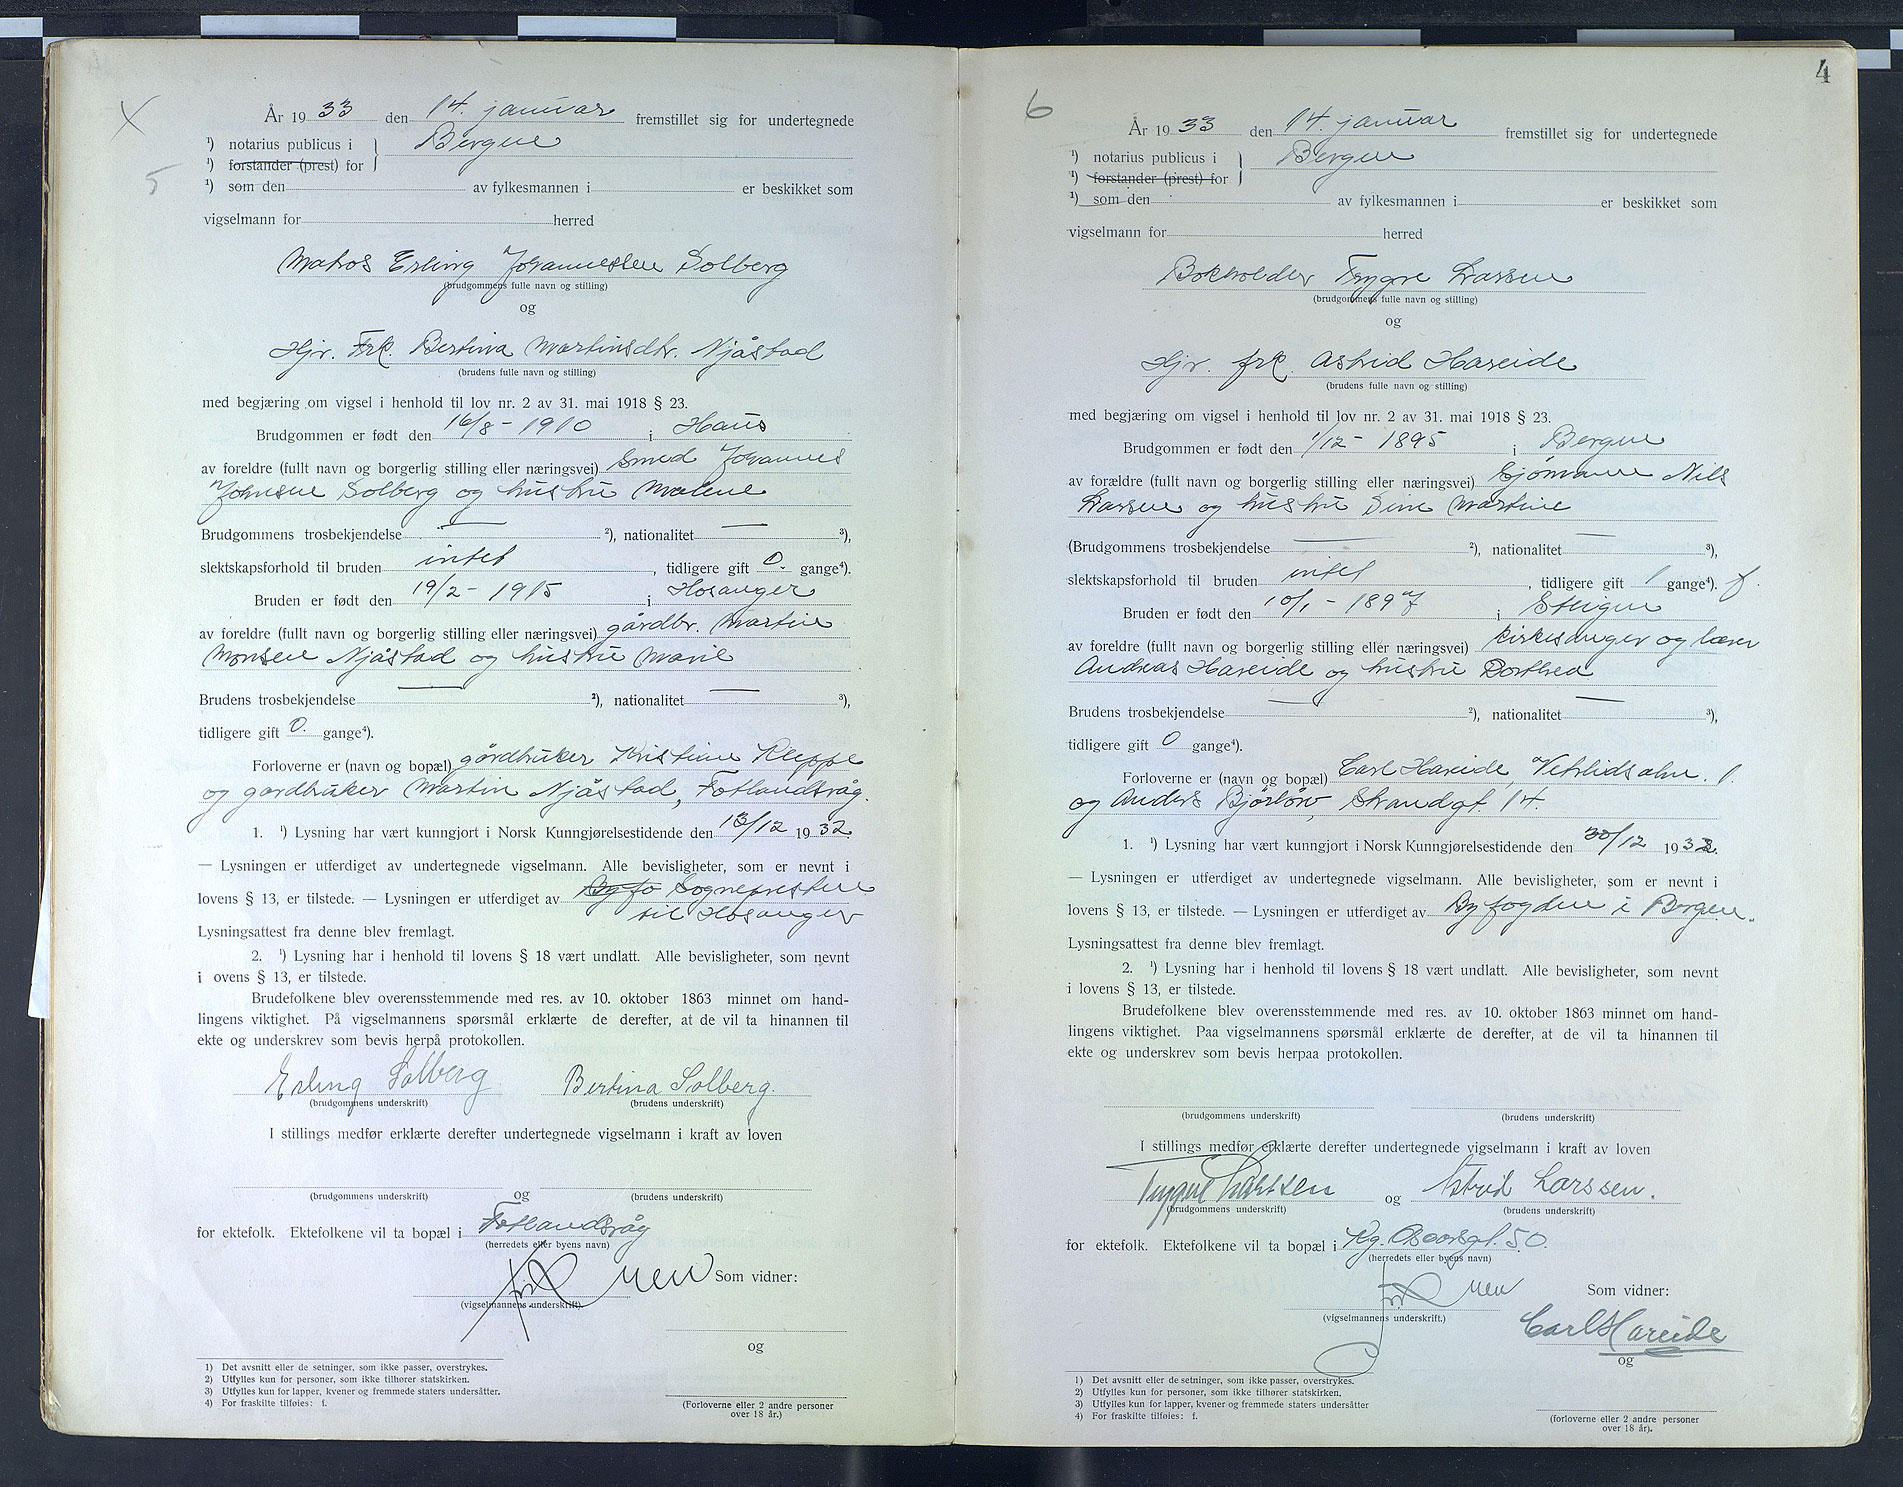 X
5
År 1933 den 14. januar fremstillet sig for undertegnede
¹) notarius publicus i } Bergen
¹) forstander (prest) for
¹) som den av fylkesmannen i er beskikket som
vigselmann for herred
Matros Erling Johannessen Solberg
(brudgommens fulle navn og stilling)
og
Hjv. Frk. Bertina Martinsdtr. Njåstad
(brudens fulle navn og stilling)
med begjæring om vigsel i henhold til lov nr. 2 av 31. mai 1918 § 23.
Brudgommen er født den 16/8 - 1910 i Haus
av foreldre (fullt navn og borgerlig stilling eller næringsvei) Smed Johannes
Johnsen Solberg og hustru Malene
Brudgommens trosbekjendelse — ²), nationalitet — ³),
slektskapsforhold til bruden intet, tidligere gift 0. gange⁴).
Bruden er født den 19/2 - 1915 i Hosanger
av foreldre (fullt navn og borgerlig stilling eller næringsvei) gårdbr. Martin
Monsen Njåstad og hustru Marie
Brudens trosbekjendelse — ²), nationalitet — ³),
tidligere gift 0. gange⁴).
Forloverne er (navn og bopæl) gårdbruker Kristian Kleppe
og gårdbruker Martin Njåstad, Fotlandsvåg.
1. ¹) Lysning har vært kunngjort i Norsk Kunngjørelsestidende den 13/12 1932.
— Lysningen er utferdiget av undertegnede vigselmann. Alle bevisligheter, som er nevnt i
lovens § 13, er tilstede. — Lysningen er utferdiget av Byfo Sognepresten
til Hosanger
Lysningsattest fra denne blev fremlagt.
2. ¹) Lysning har i henhold til lovens § 18 vært undlatt. Alle bevisligheter, som nevnt
i ovens § 13, er tilstede.
Brudefolkene blev overensstemmende med res. av 10. oktober 1863 minnet om hand-
lingens viktighet. På vigselmannens spørsmål erklærte de derefter, at de vil ta hinannen til
ekte og underskrev som bevis herpå protokollen.
Erling Solberg Bertina Solberg.
(brudgommens underskrift) (brudens underskrift)
I stillings medfør erklærte derefter undertegnede vigselmann i kraft av loven
og
(brudgommens underskrift) (brudens underskrift)
for ektefolk. Ektefolkene vil ta bopæl i Fotlandsvåg
(herredets eller byens navn)
Som vidner:
(vigselmannens underskrift).
og
1) Det avsnitt eller de setninger, som ikke passer, overstrykes.
2) Utfylles kun for personer, som ikke tilhører statskirken.
3) Utfylles kun for lapper, kvener og fremmede staters undersåtter.
4) For fraskilte tilføies: f.
(Forloverne eller 2 andre personer
over 18 år.)
4
6
År 1933 den 14. januar fremstillet sig for undertegnede
¹) notarius publicus i } Bergen
¹) forstander (prest) for
¹) som den av fylkesmannen i er beskikket som
vigselmann for herred
Bokholder Trygve Larsen
(brudgommens fulle navn og stilling)
og
Hjv. frk. Astrid Hareide
(brudens fulle navn og stilling)
med begjæring om vigsel i henhold til lov nr. 2 av 31. mai 1918 § 23.
Brudgommen er født den 1/12 - 1895 i Bergen
av forældre (fullt navn og borgerlig stilling eller næringsvei) Sjømann Nils
Larsen og hustru Sine Martine
(Brudgommens trosbekjendelse — ²), nationalitet — ³),
slektskapsforhold til bruden intet, tidligere gift 1 gange⁴). f.
Bruden er født den 10/1 - 1897 i
av foreldre (fullt navn og borgerlig stilling eller næringsvei) kirkesanger og lærer
Andreas Hareide og hustru Dorthea
Brudens trosbekjendelse — ²), nationalitet — ³),
tidligere gift 0 gange⁴).
Forloverne er (navn og bopæl) Carl Hareide, Vetrlidsalm. 1.
og Anders Strandgt. 14.
1. ¹) Lysning har vært kunngjort i Norsk Kunngjørelsestidende den 30/12 1932.
— Lysningen er utferdiget av undertegnede vigselmann. Alle bevisligheter, som er nevnt i
lovens § 13, er tilstede. — Lysningen er utferdiget av Byfogden i Bergen.
Lysningsattest fra denne blev fremlagt.
2. ¹) Lysning har i henhold til lovens § 18 vært undlatt. Alle bevisligheter, som nevnt
i lovens § 13, er tilstede.
Brudefolkene blev overensstemmende med res. av 10. oktober 1863 minnet om hand-
lingens viktighet. Paa vigselmannens spørsmål erklærte de derefter, at de vil ta hinannen til
ekte og underskrev som bevis herpaa protokollen.
(brudgommens underskrift) (brudens underskrift)
I stillings medfør erklærte derefter undertegnede vigselmann i kraft av loven
Trygve Larssen og Astrid Larssen.
(brudgommens underskrift) (brudens underskrift)
for ektefolk. Ektefolkene vil ta bopæl i Kg. Oscarsgt. 50.
(herredets eller byens navn)
Som vidner:
(vigselmannens underskrift.)
Carl Hareide
og
1) Det avsnitt eller de setninger, som ikke passer, overstrykes.
2) Utfylles kun for personer, som ikke tilhører statskirken.
3) Utfylles kun for lapper, kvener og fremmede staters undersåtter
4) For fraskilte tilføies: f.
(forloverne eller 2 andre personer
over 18 år).